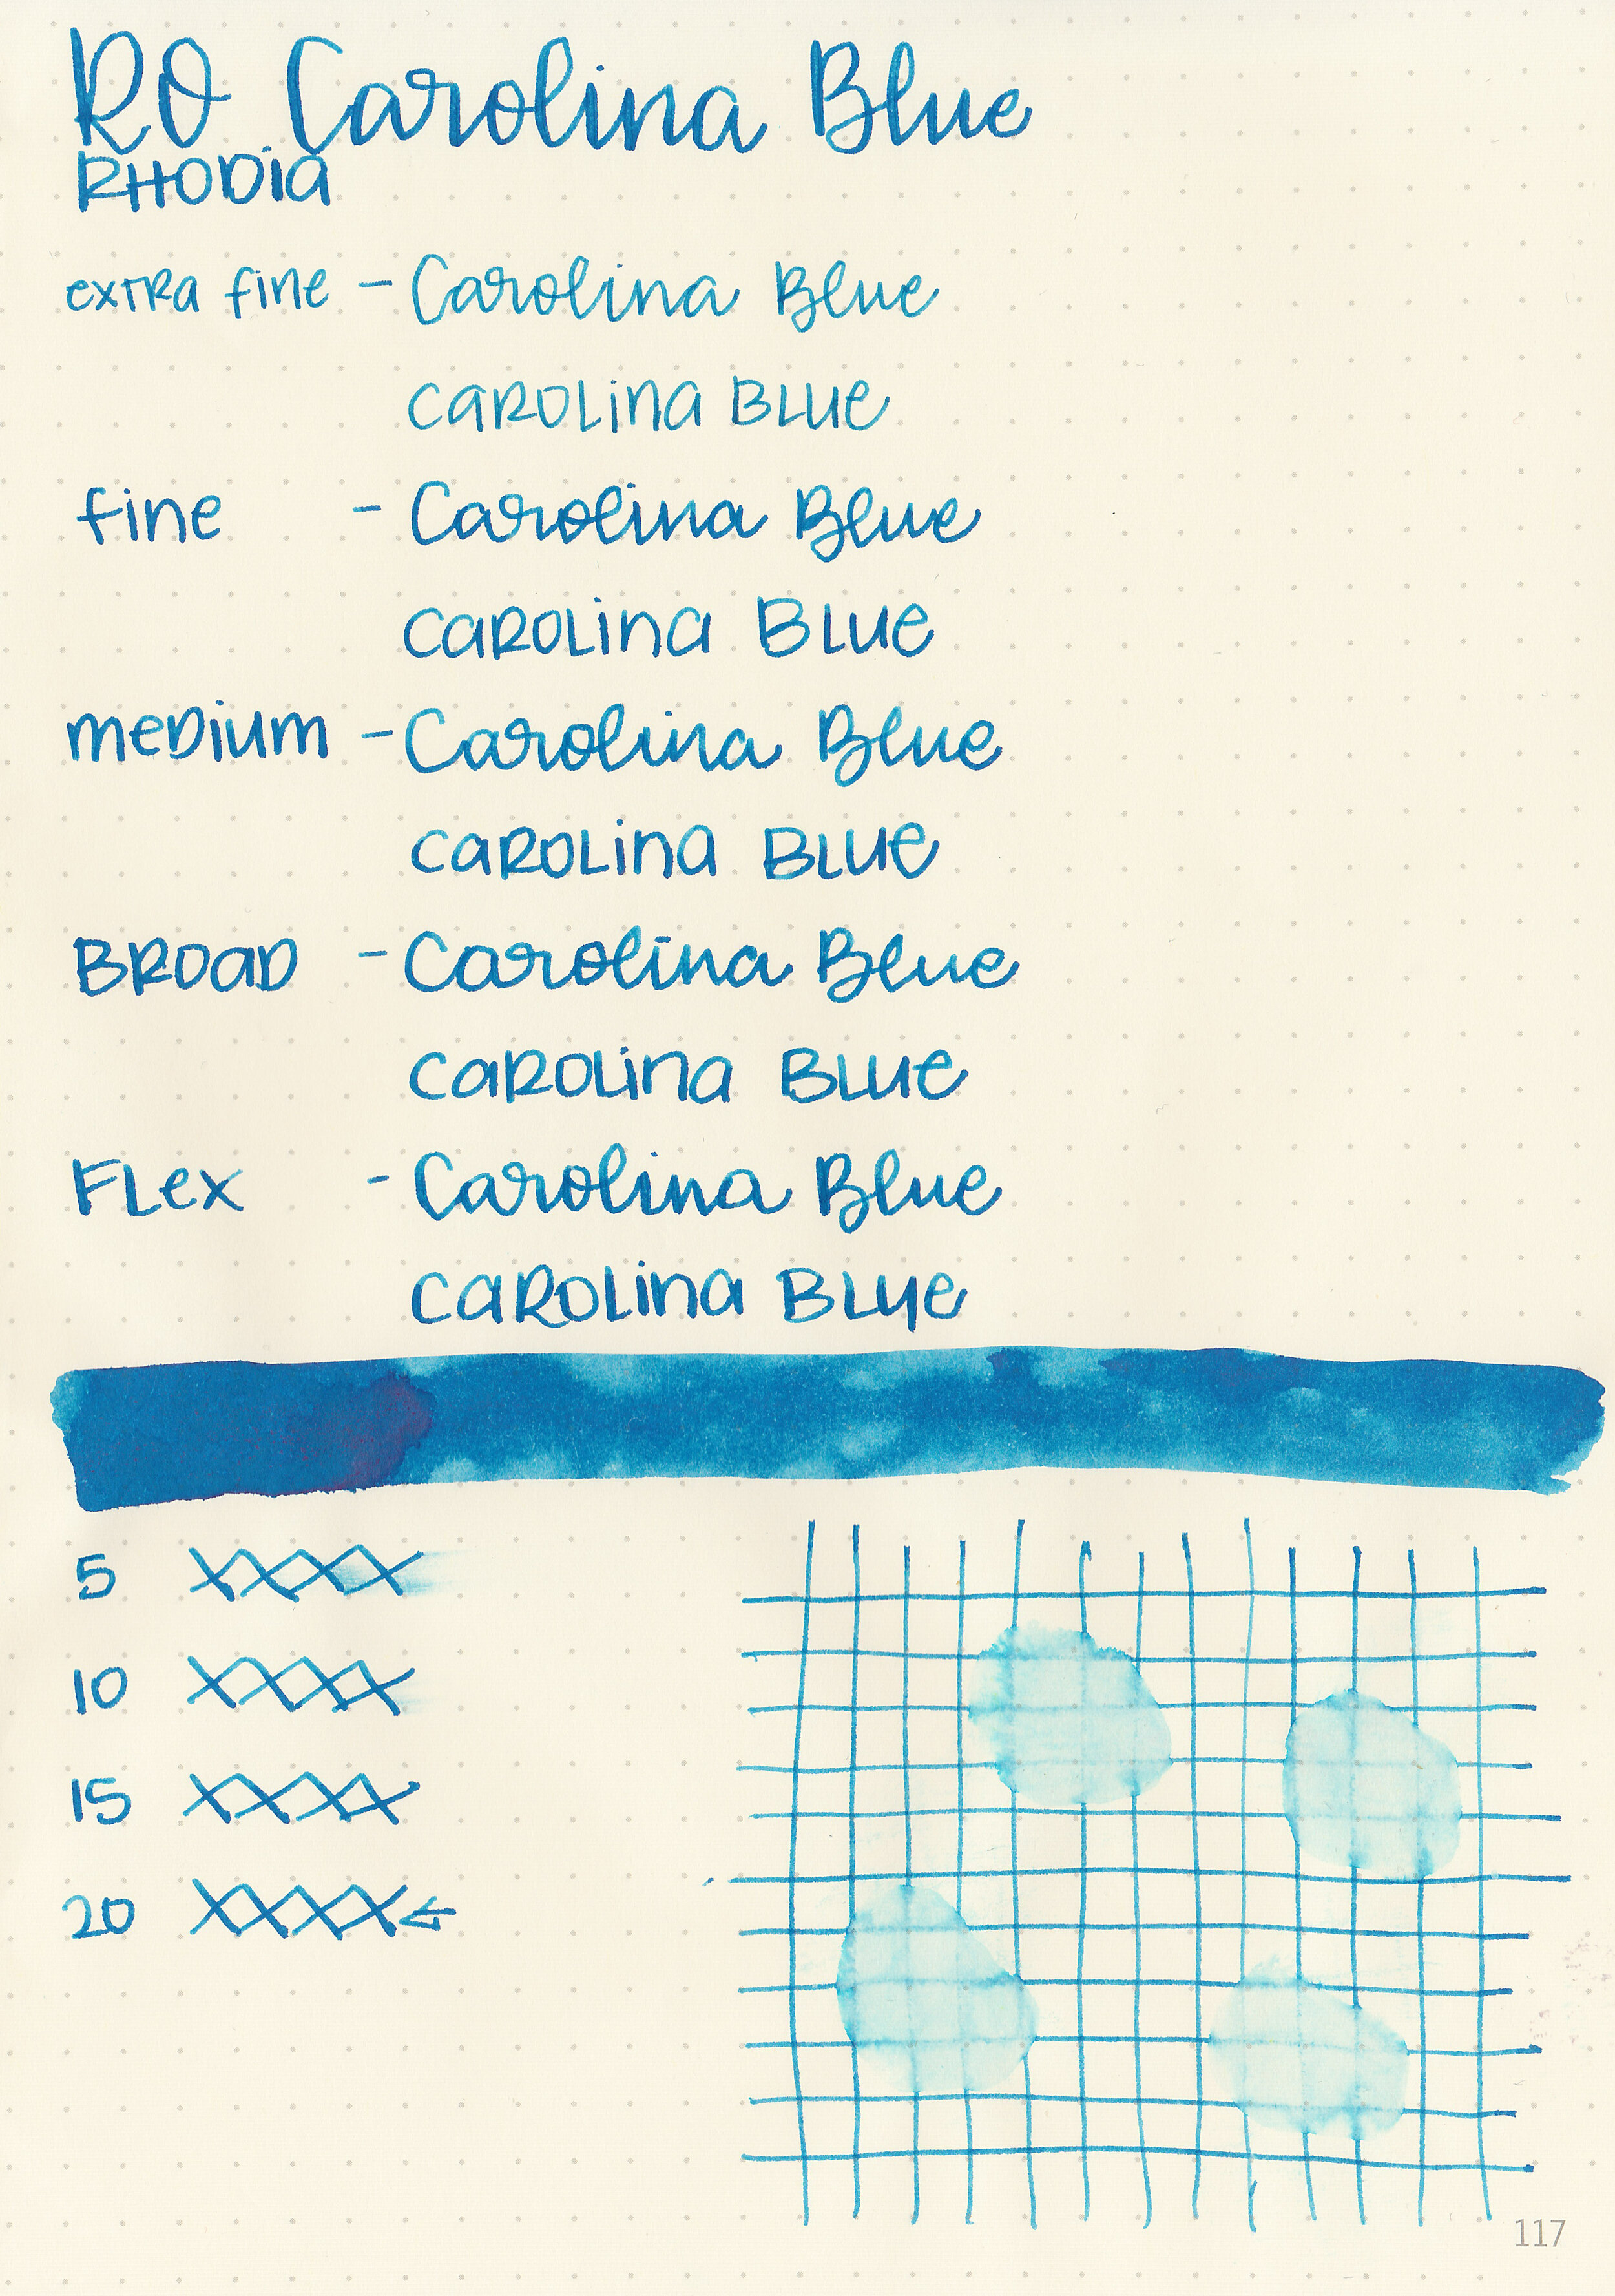 RO Carolina Blue
RHODia
extRa fine - Carolina Blue
CaROLina BLue
fine - Carolina Blue
CaROLina BLue
meDium - Carolina Blue
CaROLina BLue
BROaD - Carolina Blue
CaROLina BLue
FLex - Carolina Blue
CaROLina BLue
5 XXXX
10 XXXX
15 XXXX
20 XXXX←
117